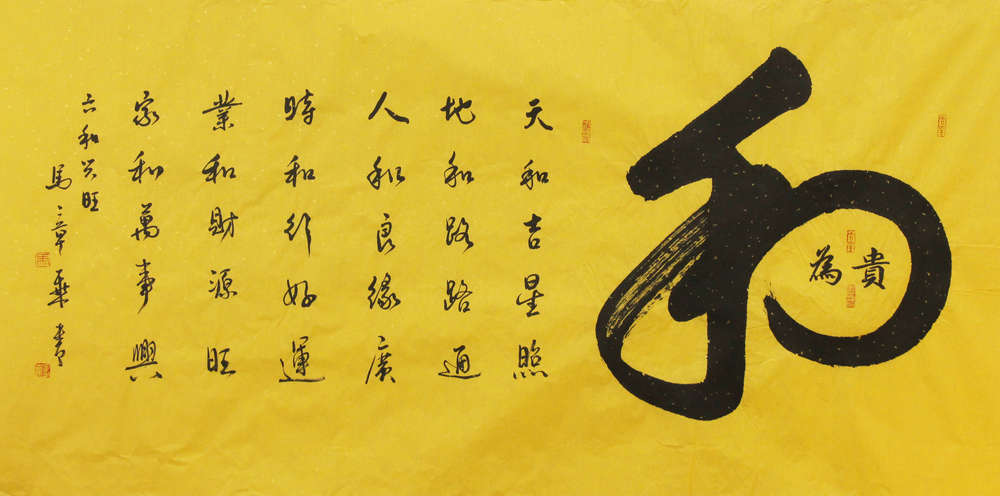 和
為貴
天和吉星照
地和路路通
人和良緣廣
時和行好運
業和財源旺
家和萬事興
六和兴旺
馬章乗書